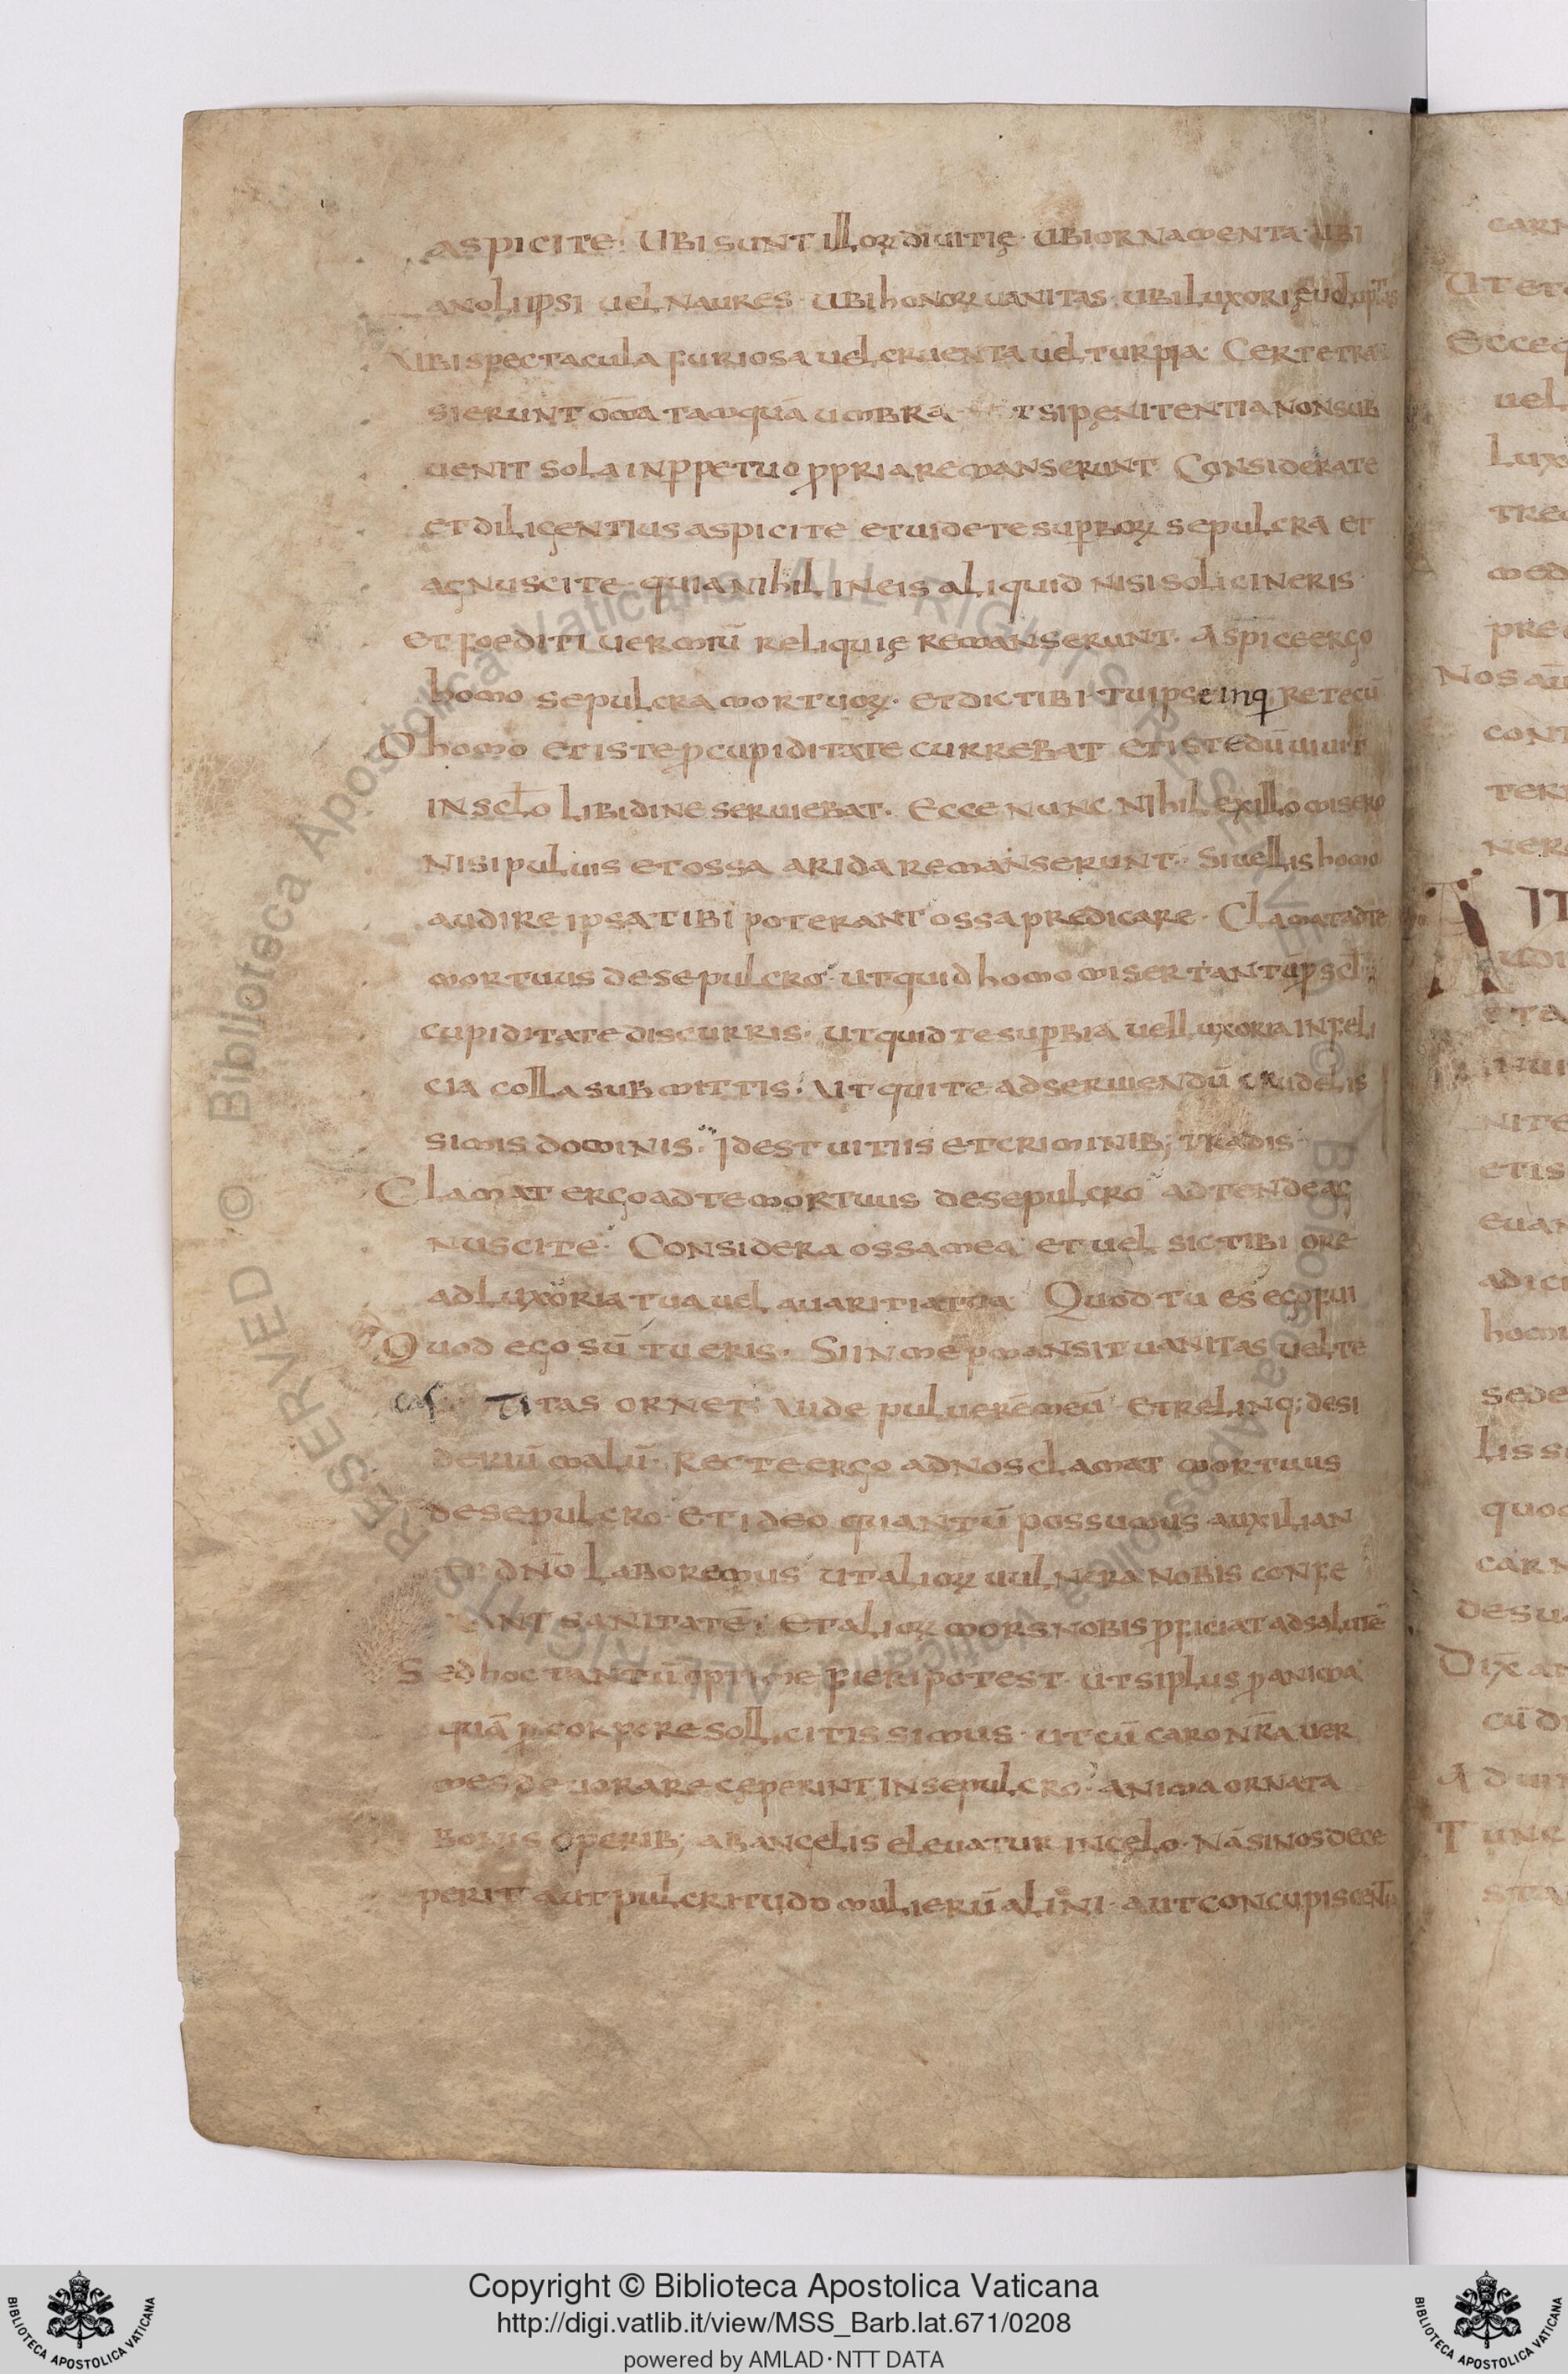 aspicite. Ubi sunt illoꝝ diuitię. ubi ornamenta. ubi
anoli ipsi uel naures. ubi honoꝝ uanitas. ubi luxorię uoluptas
Ubi spectacula furiosa uel cruenta uel turpia. Certe tran
sierunt om̄a tamquā umbra t si pęnitentia non sub
uenit sola in ꝑpetuo ꝓpria remanserunt. Considerate
et diligentius aspicite et uidete suꝑboꝝ sepulcra et
agnuscite quia nihil in eis aliquid nisi soli cineris
et foediti uermiū reliquię remanserunt. Aspice ergo
homo sepulcra mortuoꝝ. et dic tibi tu ipse inq̄ re tecū
O homo et iste ꝓ cupiditate currebat et iste dū uiuit
in scło libidine seruiebat. Ecce nunc nihil ex illo misero
nisi puluis et ossa arida remanserunt. Si uellis homo
audire ipsa tibi poterant ossa predicare. Clamat ad te
mortuus de sepulcro. ut quid homo miser tantū ꝓ scłi
cupiditate discurris. Ut quid te suꝑbia uel luxoria infeli
cia colla submittis. Ut qui te ad seruiendū crudelis
simis dominis. Idest uitiis et criminib; tradis
Clamat ergo ad te mortuus de sepulcro adtende ag
nuscite. Considera ossa mea et uel sic tibi ore
ad luxoria tua uel auaritia tua Quod tu es ego fui
Quod ego sū tu eris. Si in me ꝑmansit uanitas uel te
castitas ornet. Uide puluerē meū et relinq; desi
deriū malū. Recte ergo ad nos clamat mortuus
de sepulcro. et ideo quantū possumus auxilian
te dn̄o laboremus ut alioꝝ uulnera nobis confe
rant sanitatē. et alioꝝ mors nobis ꝓficiat ad salutē
Sed hoc tantū optime fieri potest. ut si plus ꝓ anima
quā ꝓ corpore sollicitissimus. ut cū caro nr̄a uer
mes deuorare ceperint in sepulcro. anima ornata
bonis operib; ab angelis eleuatur in cęlo. Nā si nos dece
perit aut pulcritudo mulierū alini. aut concupiscentia
Copyright © Biblioteca Apostolica Vaticana
http://digi.vatlib.it/view/MSS_Barb.lat.671/0208
powered by AMLAD·NTT DATA